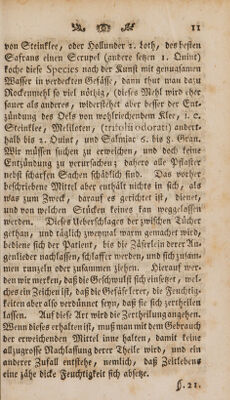 11
von Steinklee, oder Hollunder 2. Loth, des besten
Safrans einen Scrupel (andere setzen 1. Quint)
koche diese Species nach der Kunst mit genugsamen
Wasser in verdeckten Gefässe, dann thut man dazu
Rockenmehl so viel nöthig, (dieses Mehl wird eher
sauer als anderes, widerstehet aber besser der Ent-
zündung des Oels von wohlriechendem Klee, i. e.
Steinklee, Meliloten, (trifolii odorati) andert-
halb bis 2. Quint, und Salmiac 6. bis 8. Gran.
Wir müssen suchen zu erweichen, und doch keine
Entzündung zu verursachen; dahero alle Pflaster
nebst scharfen Sachen schädlich sind. Das vorher
beschriebene Mittel aber enthält nichts in sich, als
was zum Zweck, darauf es gerichtet ist, dienet,
und von welchen Stücken keines kan weggelassen
werden. Dieses Ueberschlages der zwischen Tücher
gethan, und täglich zweymal warm gemacht wird,
bediene sich der Patient, bis die Zäserlein derer Au-
genlieder nachlassen, schlaffer werden, und sich zusam-
men runzeln oder zusammen ziehen. Hierauf wer-
den wir merken, daß die Geschwulst sich einsetzet, wel-
ches ein Zeichen ist, daß die Gefässe leer, die Feuchtig-
keiten aber also verdünnet seyn, daß sie sich zertheilen
lassen. Auf diese Art wird die Zertheilung angehen.
Wenn dieses erhalten ist, muß man mit dem Gebrauch
der erweichenden Mittel inne halten, damit keine
allzugrosse Nachlassung derer Theile wird, und ein
anderer Zufall entstehe, nemlich, daß Zeitlebens
eine zähe dicke Feuchtigkeit sich absetze.
§. 21.